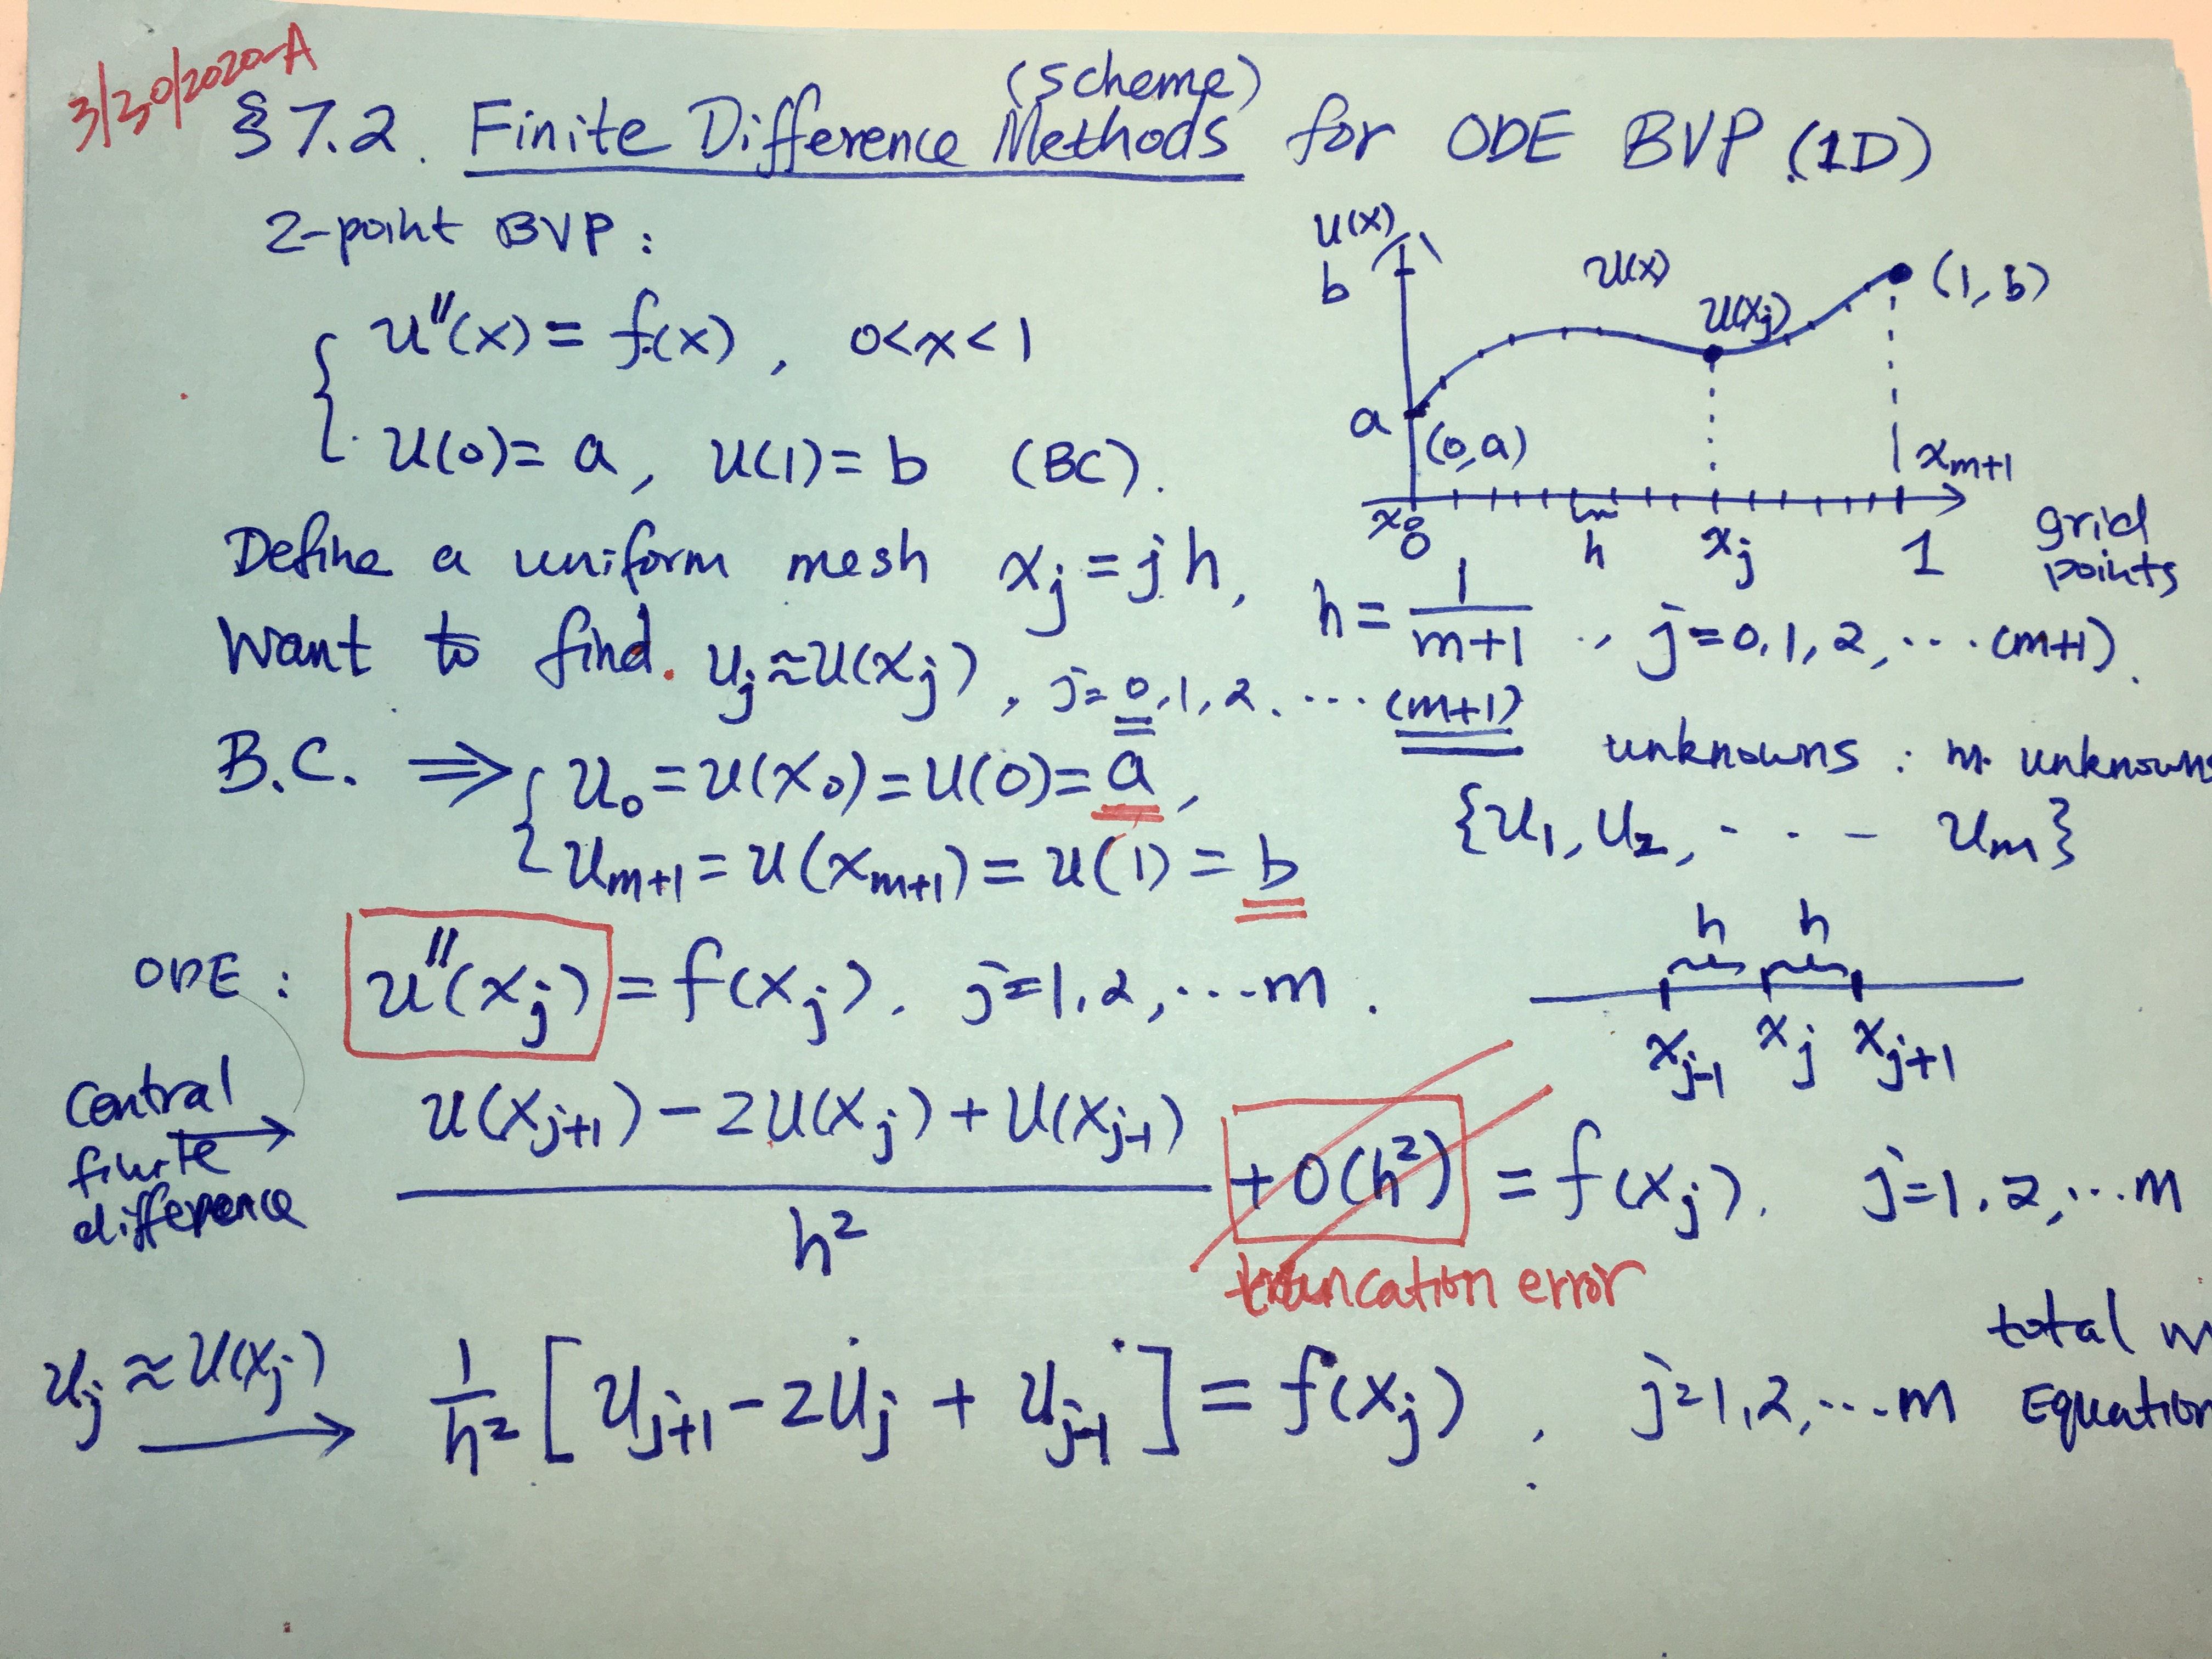 3/30/2020-A
(scheme)
§ 7.2. Finite Difference Methods for ODE BVP (1D)
2-point BVP:
u''(x) = f(x), 0<x<1
u(0)= a, u(1)= b (BC).
u(x)
b
u(x)
u(xj)
(1, b)
a
(0,a)
xm+1
x0
0
h
xj
1
grid
points
Define a uniform mesh xj = jh, h = 1/(m+1), j=0,1,2,...(m+1).
Want to find uj≈u(xj), j=0,1,2,...(m+1)
B.C. ⟹ u0 = u(x0) = u(0) = a,
um+1 = u(xm+1) = u(1) = b
unknowns: m unknowns
{u1, u2, - - - um}
ODE: u''(xj) = f(xj). j=1,2,...m.
h h
xj-1 xj xj+1
Central
finite
difference
→ (u(xj+1) - 2u(xj) + u(xj-1))/h² + O(h²) = f(xj). j=1,2,...m
truncation error
uj ≈ u(xj) → 1/h² [uj+1 - 2uj + uj-1] = f(xj), j=1,2,...m
total m
Equation